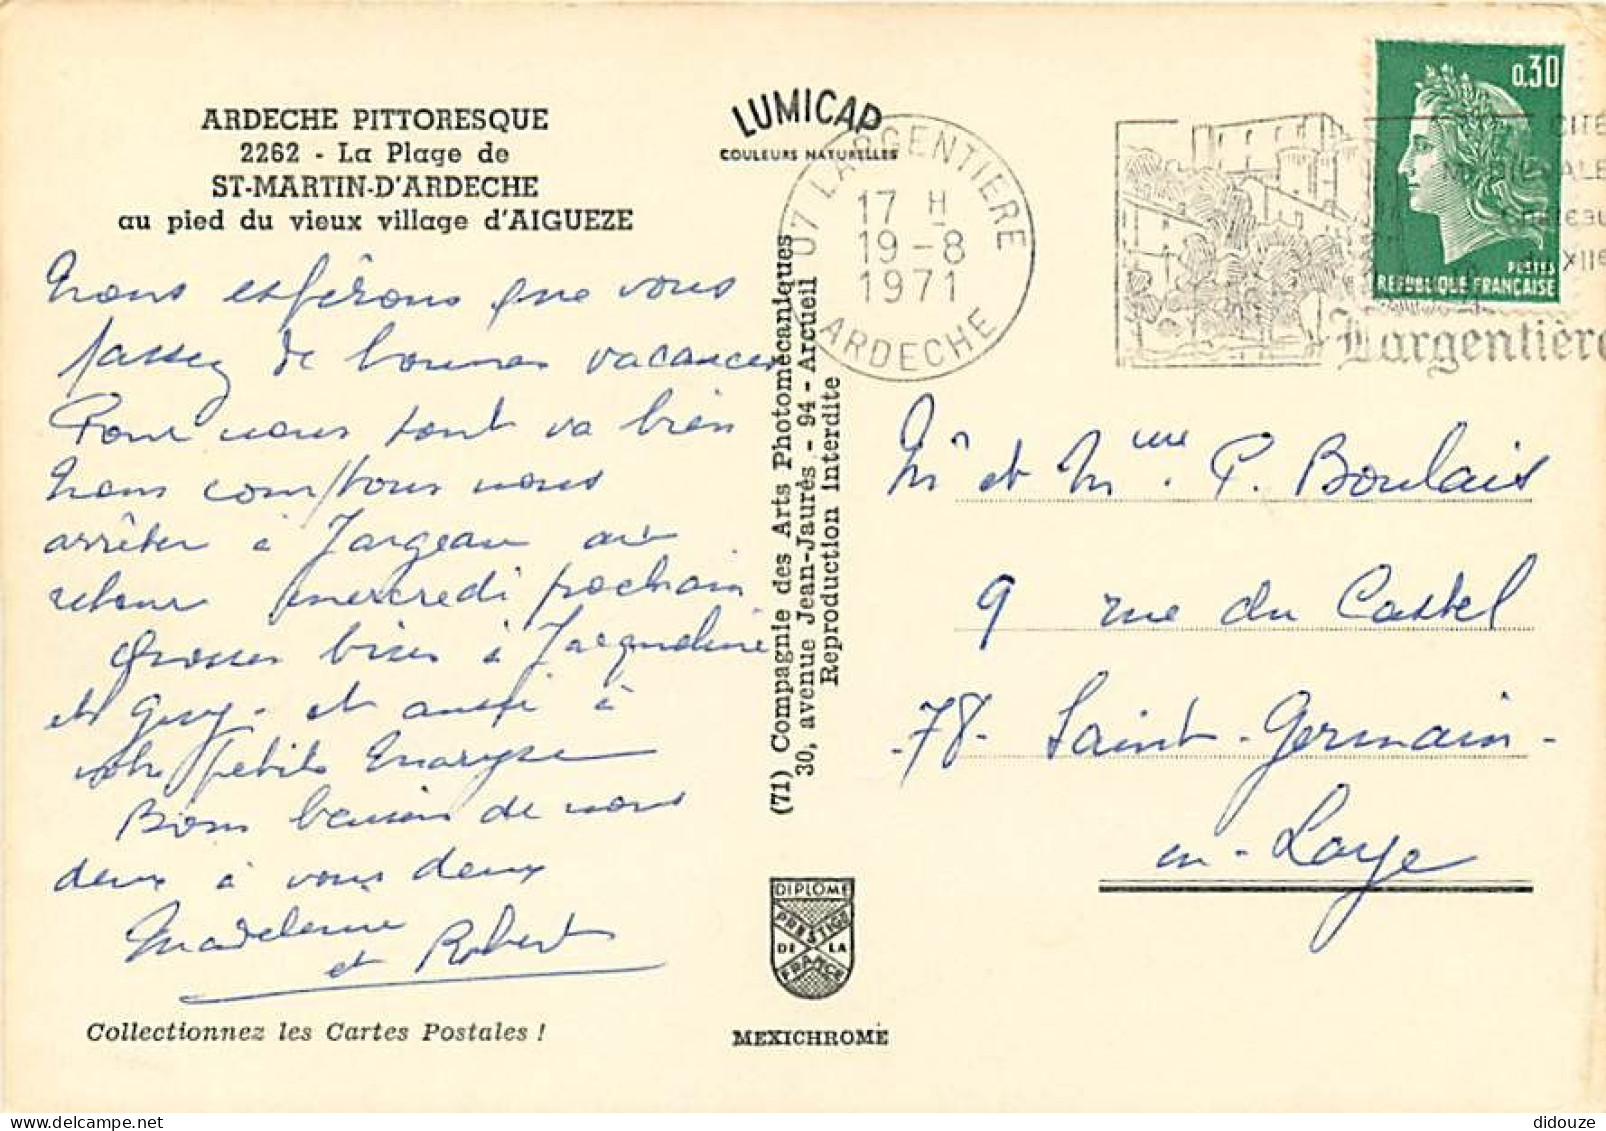 ARDECHE PITTORESQUE
2262 - La Plage de
ST-MARTIN-D'ARDECHE
au pied du vieux village d'AIGUEZE
Nous espérons que vous
passez de bonnes vacances
Pour nous tout va bien
Nous comptons nous
arrêter à Jargeau au
retour mercredi prochain
Grosses bises à Jacqueline
et Guy. et aussi à
votre petite Maryse
Bons baisers de nous
deux à vous deux
Madeleine
et Robert
Collectionnez les Cartes Postales !
LUMICAP
COULEURS NATURELLES
07 LARGENTIERE
17 H
19-8
1971
ARDECHE
(71) Compagnie des Arts Photomécaniques
30, avenue Jean-Jaurès - 94 - Arcueil
Reproduction interdite
DIPLOME
PRESTIGE
DE LA
FRANCE
MEXICHROME
0,30
POSTES
REPUBLIQUE FRANÇAISE
CITÉ
MEDIEVALE
Château
du XIIe
Largentière
Mr et Mme. P. Boulais
9 rue du Castel
-78- Saint-Germain-
en-Laye
delcampe.net
didouze